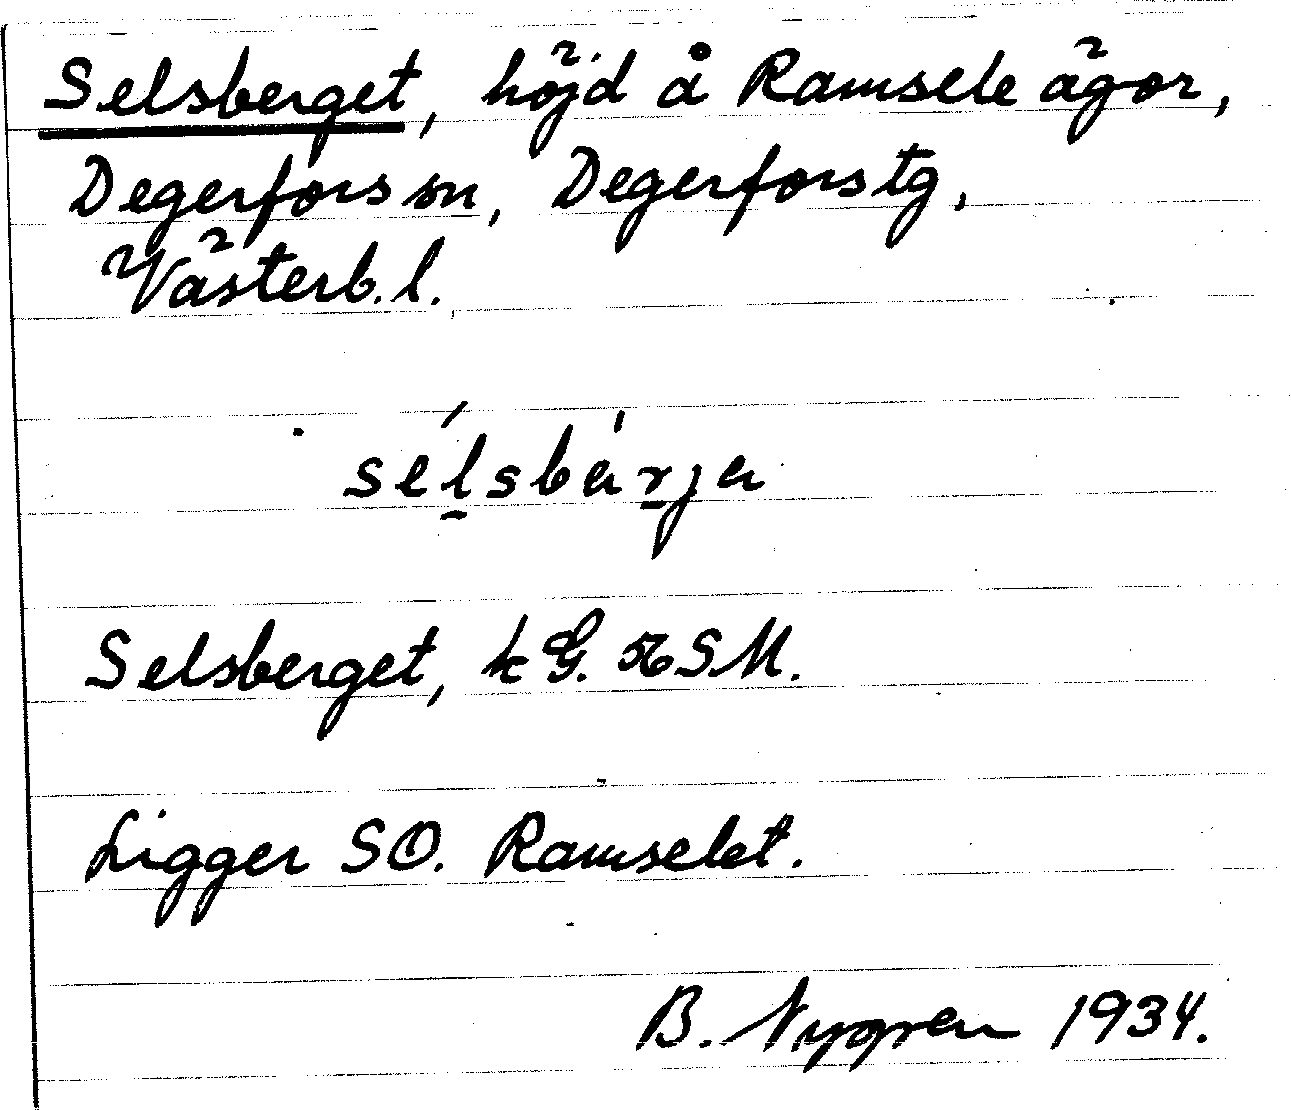 Selsberget, höjd å Ramsele ägor,
Degerfors sn, Degerfors tg,
Västerb. l.
Selsberget, k G. 56 SM.
Ligger SO. Ramselet.
B. Nygren 1934.